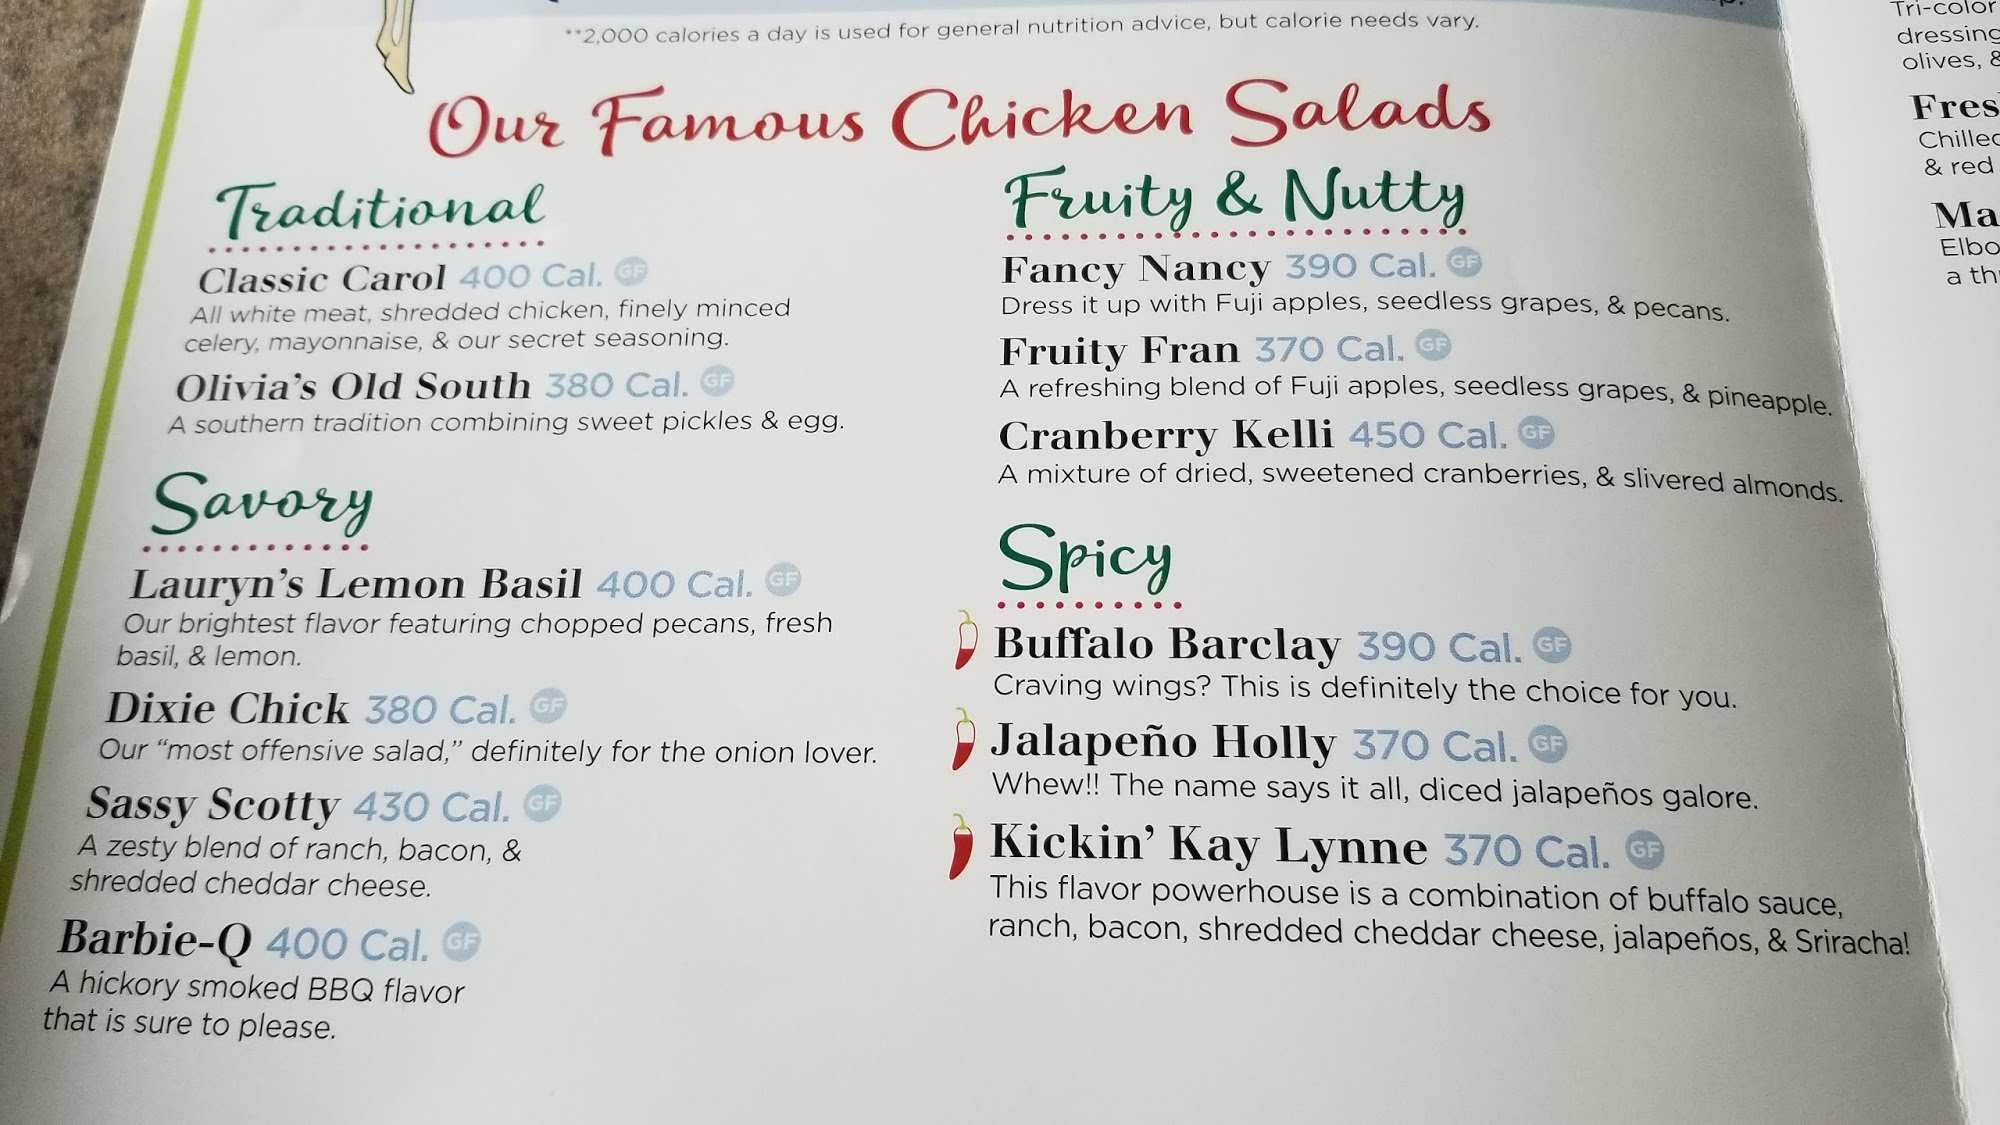 **2,000 calories a day is used for general nutrition advice, but calorie needs vary.
Our Famous Chicken Salads
Traditional
Classic Carol 400 Cal. GF
All white meat, shredded chicken, finely minced
celery, mayonnaise, & our secret seasoning.
Olivia's Old South 380 Cal. GF
A southern tradition combining sweet pickles & egg.
Savory
Lauryn's Lemon Basil 400 Cal. GF
Our brightest flavor featuring chopped pecans, fresh
basil, & lemon.
Dixie Chick 380 Cal. GF
Our “most offensive salad,” definitely for the onion lover.
Sassy Scotty 430 Cal. GF
A zesty blend of ranch, bacon, &
shredded cheddar cheese.
Barbie-Q 400 Cal. GF
A hickory smoked BBQ flavor
that is sure to please.
Fruity & Nutty
Fancy Nancy 390 Cal. GF
Dress it up with Fuji apples, seedless grapes, & pecans.
Fruity Fran 370 Cal. GF
A refreshing blend of Fuji apples, seedless grapes, & pineapple.
Cranberry Kelli 450 Cal. GF
A mixture of dried, sweetened cranberries, & slivered almonds.
Spicy
Buffalo Barclay 390 Cal. GF
Craving wings? This is definitely the choice for you.
Jalapeño Holly 370 Cal. GF
Whew!! The name says it all, diced jalapeños galore.
Kickin' Kay Lynne 370 Cal. GF
This flavor powerhouse is a combination of buffalo sauce,
ranch, bacon, shredded cheddar cheese, jalapeños, & Sriracha!
Tri-color
dressing
olives, &
Fres
Chilled
& red
Ma
Elbo
a th